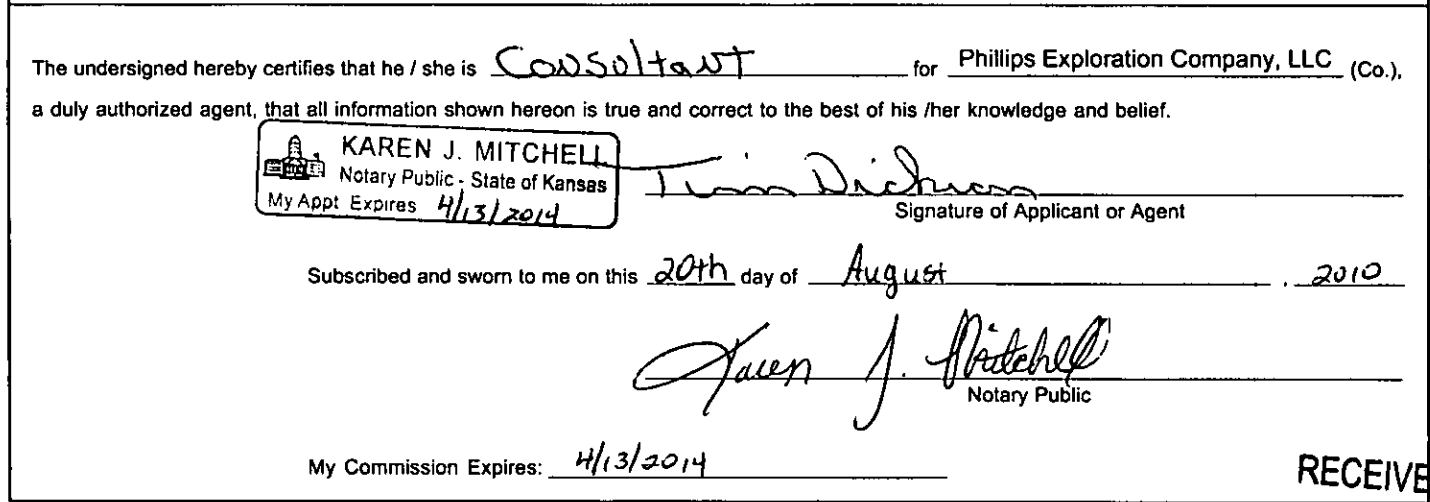 The undersigned hereby certifies that he / she is Consultant for Phillips Exploration Company, LLC (Co.),
a duly authorized agent, that all information shown hereon is true and correct to the best of his /her knowledge and belief.
KAREN J. MITCHELL
Notary Public - State of Kansas
My Appt Expires 4/13/2014
Tim
Signature of Applicant or Agent
Subscribed and sworn to me on this 20th day of August , 2010
Karen J. Mitchell
Notary Public
My Commission Expires: 4/13/2014
RECEIVE